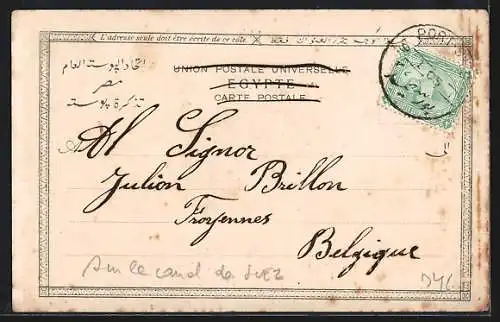 L'adresse seule doit être écrite de ce côté.
اتحاد البوستة العام
مصر
تذكرة بوستة
UNION POSTALE UNIVERSELLE
EGYPTE
CARTE POSTALE
PORT
Al Signor
Julion Brillon
Froyennes
Belgique
Sur le canal de Suez
D46